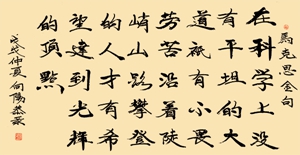 馬克思金句
在科学上没
有平坦的大
道祇有不畏
劳苦沿着陡
峭山路攀登
的人才有希
望達到光輝
的頂點
戊戌仲夏向陽恭録